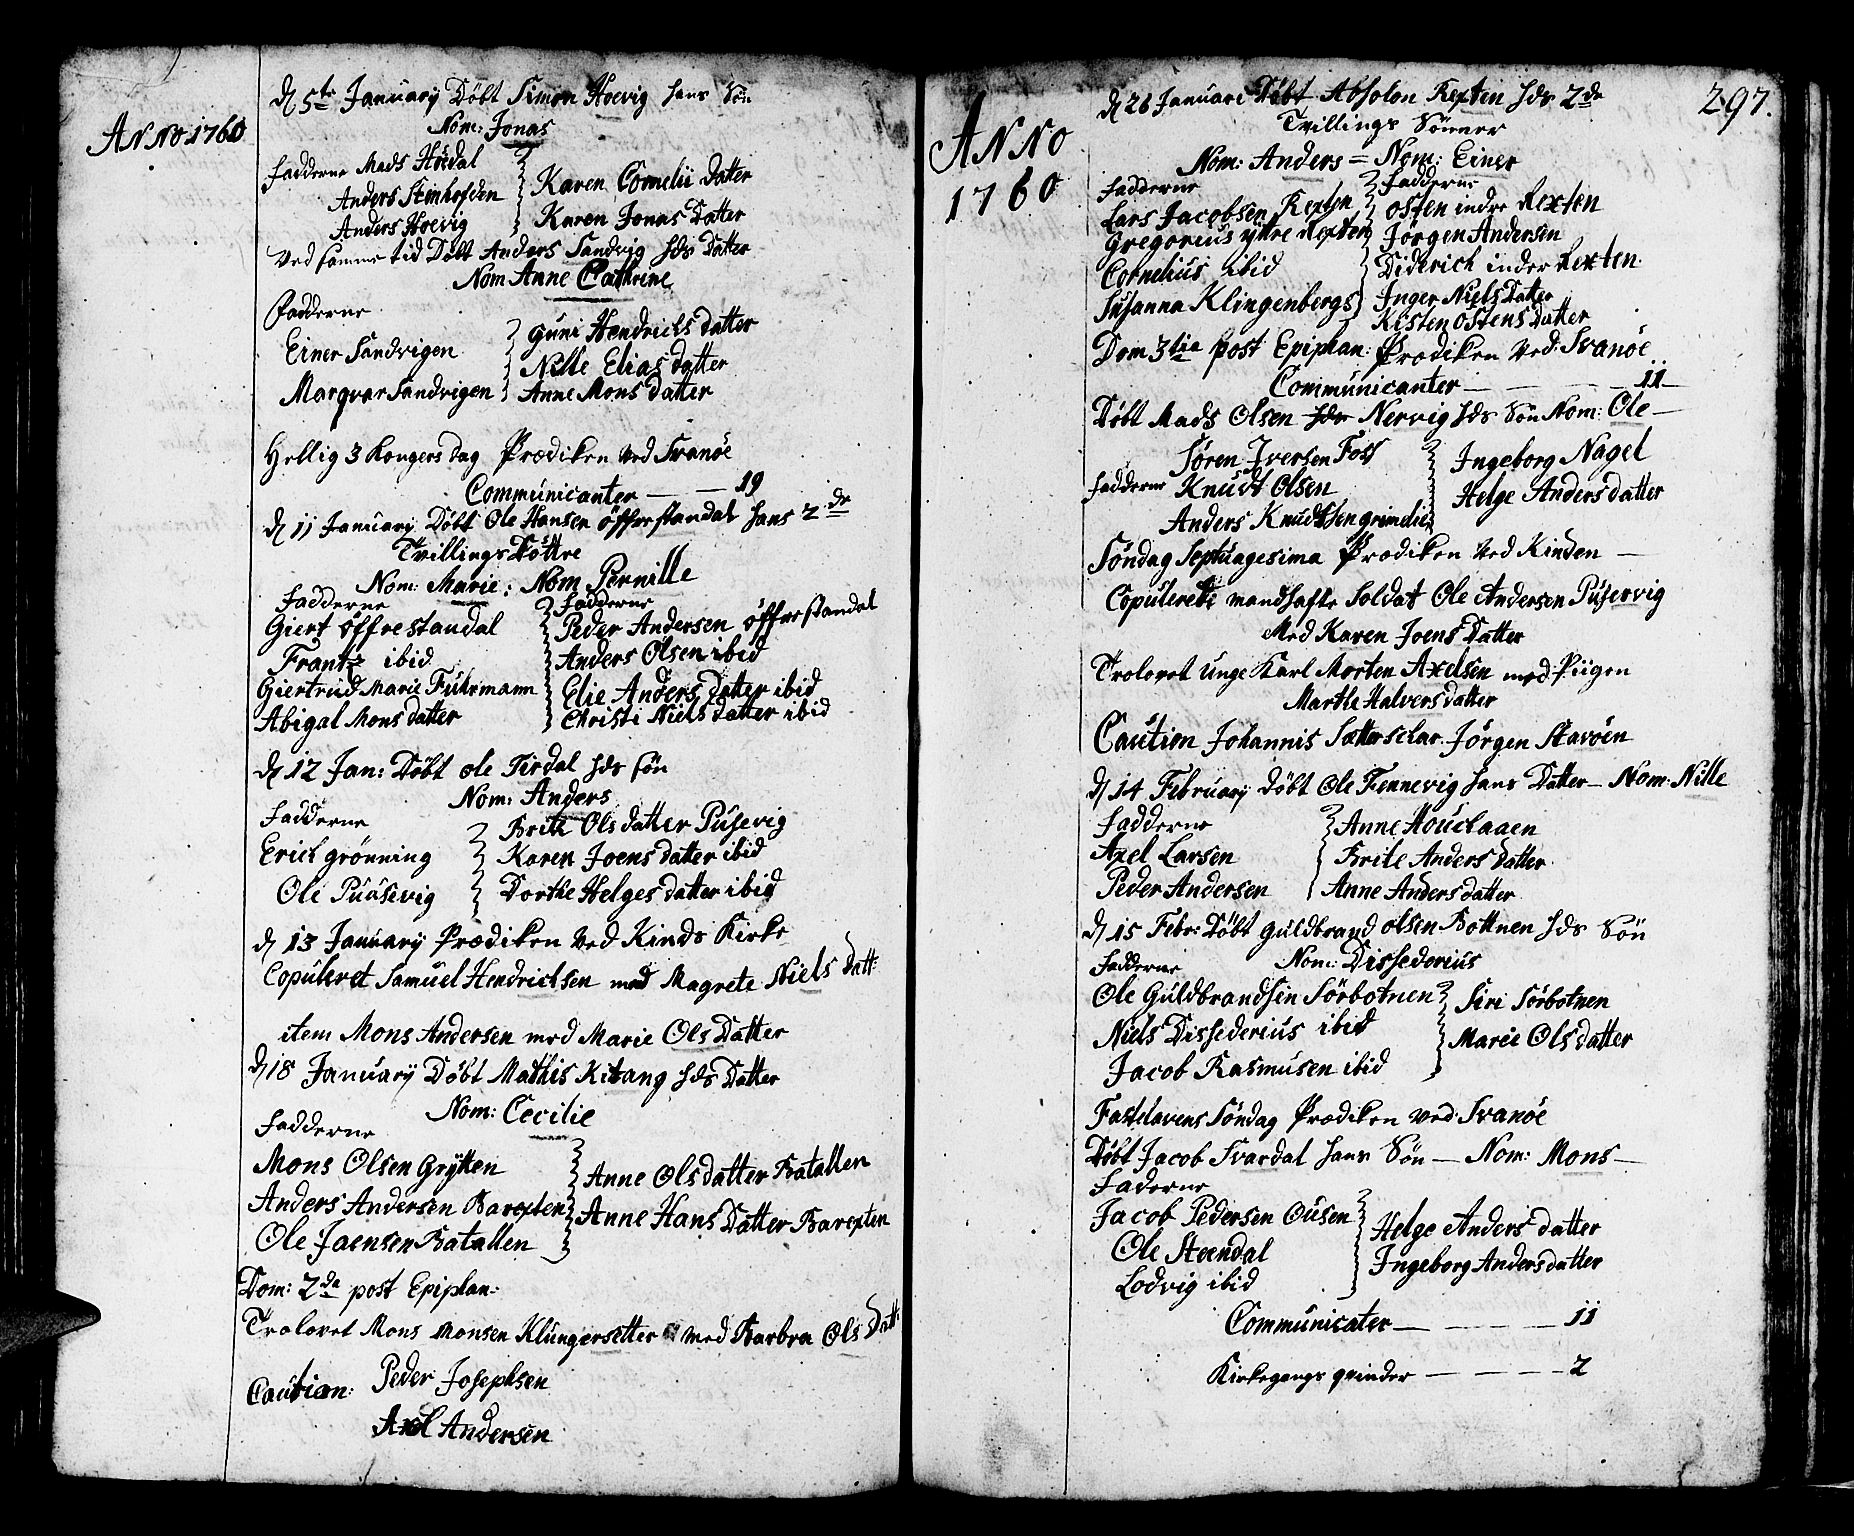 ANNO 1760
d 5te January Døbt Simon Hoevig hans Søn
Nom: Jonas
Fadderne Mads Høedal
Anders Steinhofden
Anders Hoevig
Karen Cornelii Datter
Karen Jonas Datter
Ved samme tid Døbt Anders Sandvig hds Datter
Nom Anne Cathrine
Fadderne
Einer Sandvigen
Marqvar Sandvigen
Guni Hendrichs datter
Nille Elias datter
Anne Mons datter
Hellig 3 Kongers dag Prædiken ved Svanöe
Communicanter — — 19
d 11 January Döbt Ole Hansen öffrestandal hans 2de
Tvillings Döttre
Nom: Marie: Nom Pernille
Fadderne
Giert öffrestandal
Frantz ibid
Giertrud Marie Fuhrmann
Abigal Mons datter
Fadderne
Peder Andersen öffrestandal
Anders Olsen ibid
Elie Anders datter ibid
Christi Niels datter ibid
d 12 Jan: Döbt ole Tirdal hds sön
Nom: Anders
Fadderne
Erich grönning
Ole Puusevig
Brite Ols datter Pusevig
Karen Joens datter ibid
Dorthe Helges datter ibid
d 13 January Prædiken ved Kinds Kirke
Copuleret Samuel Hendrichsen med Magrete Niels Datt:
item Mons Andersen med Marie Ols Datter
d 18 January Döbt Mathis Kitang hds Datter
Nom: Cecilie
Fadderne
Mons Olsen Grÿtten
Anders Andersen Barexten
Ole Jaensen Batallen
Anne Ols datter Batallen
Anne Hans Datter Barexten
Dom: 2da post Epiphan:
Trolovet Mons Monsen Klungersetter med Barbra Ols Datt:
Caution: Peder Josephsen
Axel Andersen
297.
ANNO
1760
d 26 Januari Døbt Absolon Rexten hds 2de
Tvillings Sönner
Nom: Anders = Nom: Einer
Fadderne
Lars Jacobsen Rexten
Gregorius yttre Rexten
Cornelius ibid
Susanna Klingenbergs
Fadderne
Osten indre Rexten
Jörgen Andersen
Diderich inder Rexten
Inger Niels Datter
Kisten Ostens datter
Dom 3tia post Epiphan: Prædiken ved Svanöe
Communicanter — — — 11 —
Döbt Mads Olsen hds Nervig hds Sön Nom: Ole —
Fadderne
Sören Iversen Foss
Knudt Olsen
Anders Knudtsen grimelie
Ingeborg Nagel
Helge Anders datter
Söndag Septuagesima Prædiken ved Kinden —
Copulerede mandhafte Soldat Ole Andersen Puservig
Med Karen Joens Datter
Trolovet unge Karl Morten Axelsen med Piigen
Marthe Halvers datter
Caution Johannis Sætterschar Jörgen Stavöen
d 14 February döbt Ole Fennevig hans Datter — Nom: Nille
Fadderne
Axel Larsen
Peder Andersen
Anne Houclaaen
Brite Anders datter
Anne Anders datter
d 15 Febr: Döbt Guldbrand olsen Bottnen hds Sön
Nom: Dissederius
Fadderne
Ole Guldbrandsen Sörbotnen
Niels Dissederius ibid
Jacob Rasmusen ibid
Siri Sörbotnen
Marie Ols datter
Fastelavens Söndag Prædiken ved Svanöe
Döbt Jacob Svardal hans Sön — Nom: Mons —
Faderne
Jacob Pedersen Ousen
Ole Steendal
Lodvig ibid
Helge Anders datter
Ingeborg Anders datter
Communicater — — — — 11
Kirkegangs qvinder — — — — 2